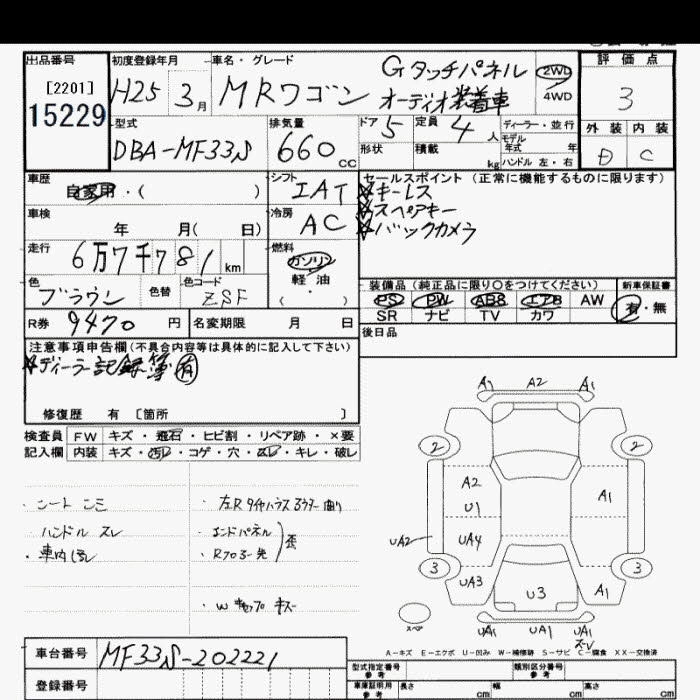 出品番号
[2201]
15229
初度登録年月
H25 3月
車名・グレード
MRワゴン
Gタッチパネル
オーディオ装着車
2WD
4WD
評価点
3
外装 内装
D C
型式
DBA-MF33S
排気量
660cc
ドア 5
定員 4人
ディーラー・並行
モデル年式 年
形状
積載 kg
ハンドル 左・右
車歴
自家用・( )
シフト
IAT
セールスポイント (正常に機能するものに限ります)
☆キーレス
☆スペアキー
☆バックカメラ
車検
年 月( 日)
冷房
AC
走行
6万7千781km
燃料
ガソリン
軽油
( )
色
ブラウン
色替
色コード
ZSF
装備品(純正品に限り○をつけてください)
新車保証書
PS PW ABS エアB AW
SR ナビ TV カワ
有・無
R券 9470円
名変期限 月 日
後日品
注意事項申告欄(不具合内容等は具体的に記入して下さい)
☆ディーラー記録簿有
修復歴 有 [箇所 ]
検査員 FW キズ・飛石・ヒビ割・リペア跡・×要
記入欄 内装 キズ・汚レ・コゲ・穴・スレ・キレ・破レ
・シートシミ
ハンドル スレ
・車内汚レ
・エンドパネル
・Rフロアー先
歪
・Wキャップ キズ
A1 A2 A1
2 2
A2
U1
A1
UA2
UA4
3 3
UA3
U3
A1
スペア
UA1 UA1 UA1
A-キズ E-エクボ U-凹み W-補修跡 S-サビ C-腐食 XX-交換済
車台番号
MF33S-202221
登録番号
型式指定番号
参考
類別区分番号
参考
車庫証明用
参考
長さ cm
幅 cm
高さ cm